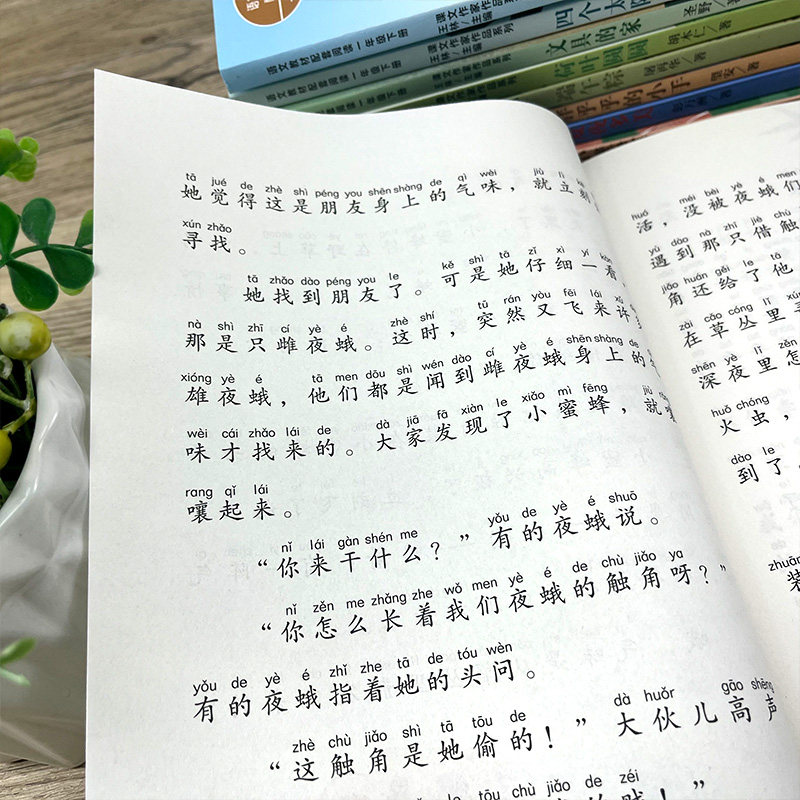 语文教材配套阅读一年级下册
课文作家作品系列
王林/主编
四个太阳
语文教材配套阅读一年级下册
课文作家作品系列
王林/主编
文具的家
圣野/著
语文教材配套阅读一年级下册
课文作家作品系列
荷叶圆圆
胡木仁/著
端午粽
屠再华/著
的小手
tā jué de zhè shì péng you shēn shàng de qì wèi jiù lì
她觉得这是朋友身上的气味，就立刻
xún zhǎo
寻找。
tā zhǎo dào péng you le kě shì tā zǐ xì yí kàn
她找到朋友了。可是她仔细一看，
nà shì zhī cí yè é zhè shí tū rán yòu fēi lái xǔ
那是只雌夜蛾。这时，突然又飞来许
xióng yè é tā men dōu shì wén dào cí yè é shēn shàng de
雄夜蛾，他们都是闻到雌夜蛾身上的
wèi cái zhǎo lái de dà jiā fā xiàn le xiǎo mì fēng jiù
味才找来的。大家发现了小蜜蜂，就嚷
rang qǐ lái
嚷起来。
nǐ lái gàn shén me yǒu de yè é shuō
“你来干什么？”有的夜蛾说。
nǐ zěn me zhǎng zhe wǒ men yè é de chù jiǎo ya
“你怎么长着我们夜蛾的触角呀？”
yǒu de yè é zhǐ zhe tā de tóu wèn
有的夜蛾指着她的头问。
zhè chù jiǎo shì tā tōu de dà huǒr gāo shēng
“这触角是她偷的！”大伙儿高声
de zéi
的贼！”
huó méi bèi yè é men
活，没被夜蛾们
yù dào nà zhī jiè chù
遇到那只借触
jiǎo huán gěi le tā
角还给了他
zài cǎo cóng lǐ
在草丛里
shēn yè lǐ zěn
深夜里怎
huǒ chóng
火虫，
dào le
到了
zhuāng
装